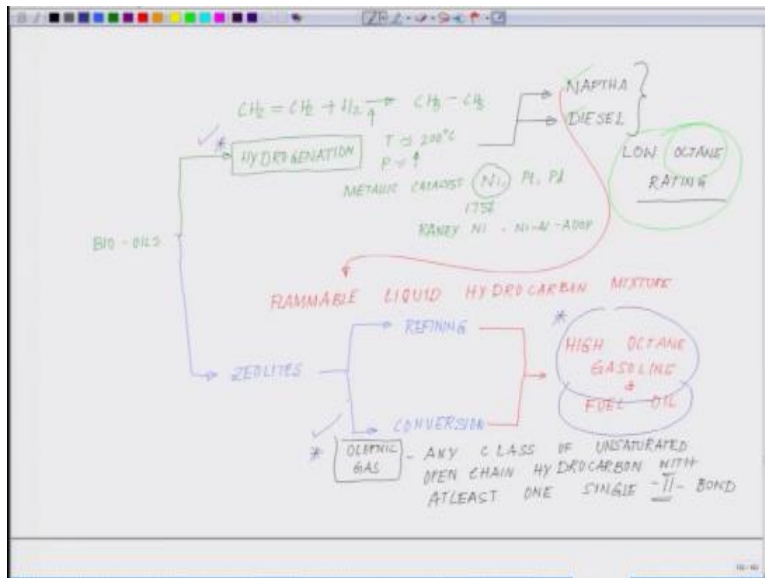 CH2 = CH2 + H2 → CH3 - CH3
NAPTHA
DIESEL
* HYDROGENATION
T ≈ 200°C
P ≈ ↑
METALLIC CATALYST Ni, Pt, Pd
RANEY Ni - Ni-Al-ALLOY
LOW OCTANE
RATING
BIO-OILS
FLAMMABLE LIQUID HYDROCARBON MIXTURE
ZEOLITES
REFINING
CONVERSION
*
HIGH OCTANE
GASOLINE
&
FUEL OIL
* OLEFNIC
GAS
- ANY CLASS OF UNSATURATED
OPEN CHAIN HYDROCARBON WITH
ATLEAST ONE SINGLE -II- BOND